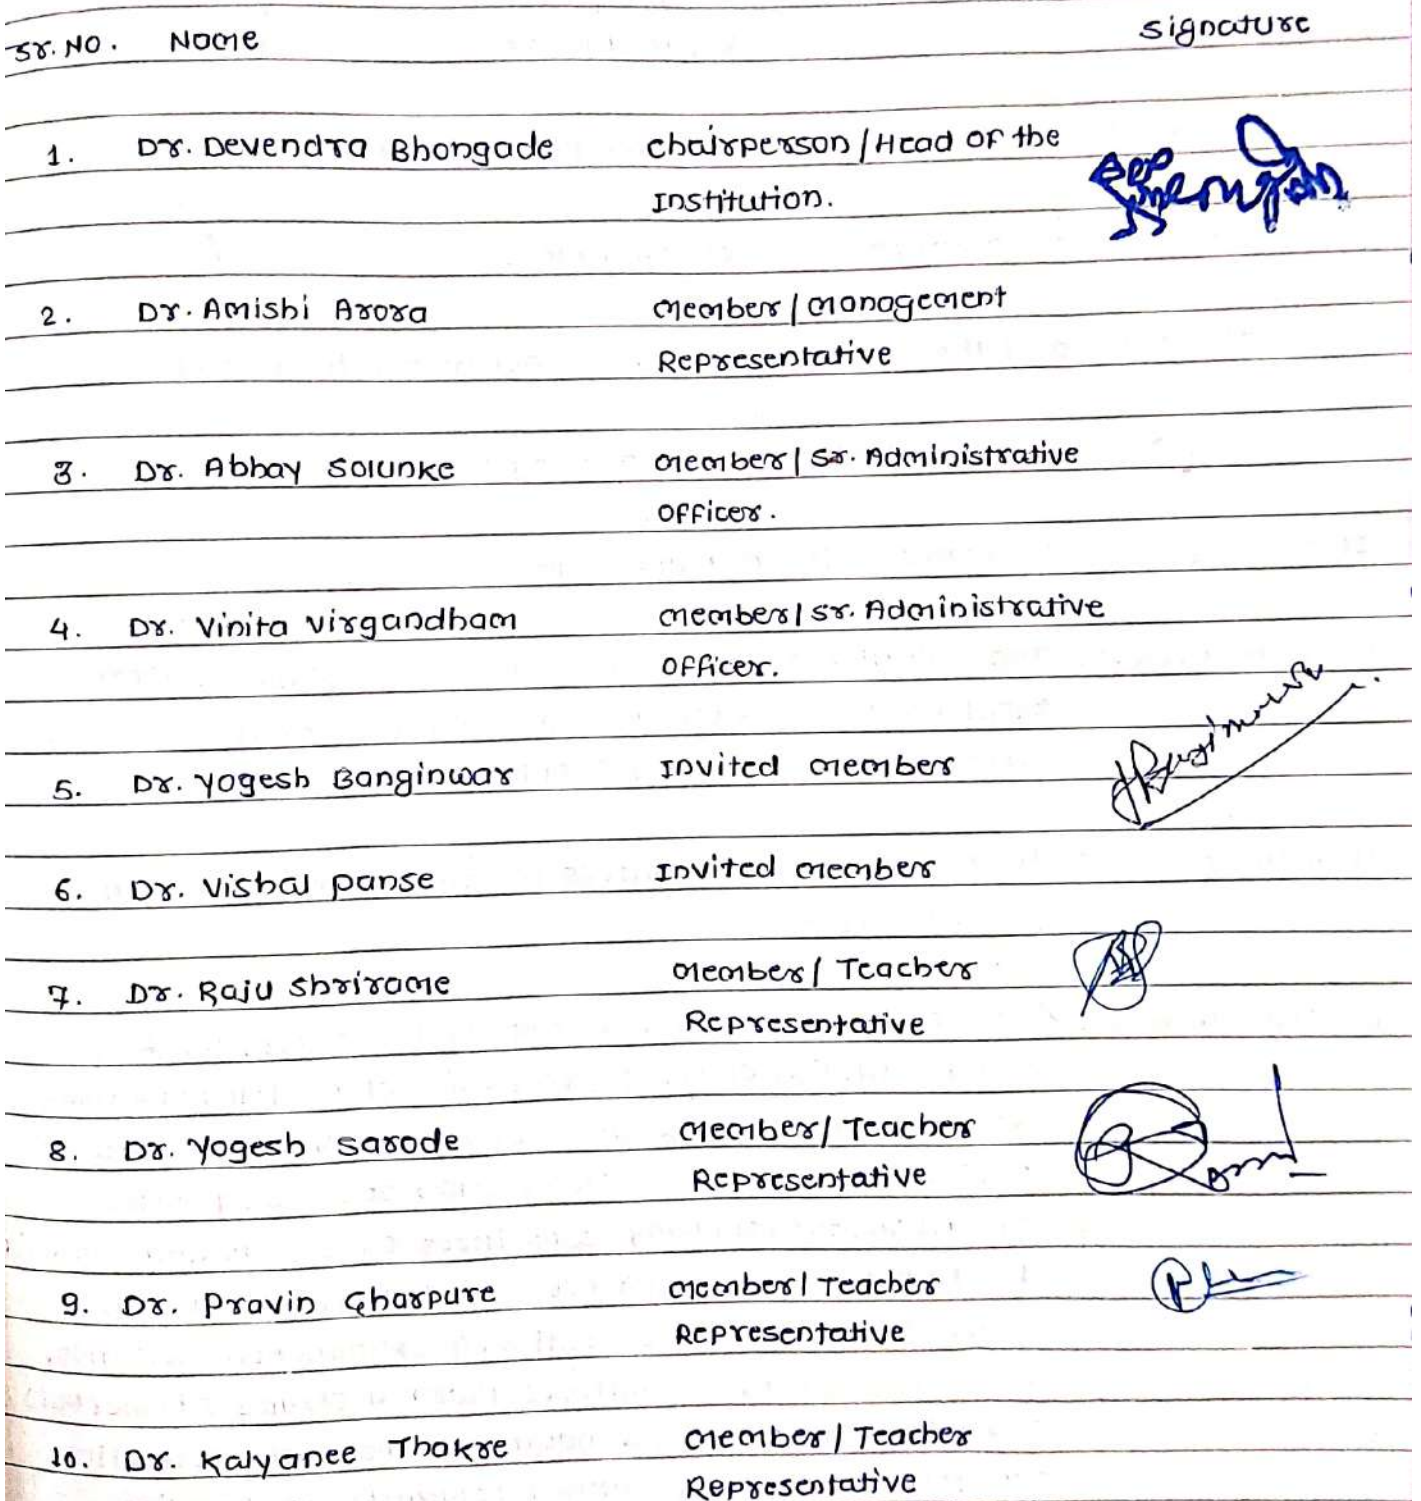 Sr. No. Name Signature
1. Dr. Devendra Bhongade Chairperson/Head of the
Institution.
2. Dr. Amishi Arora Member/Management
Representative
3. Dr. Abhay Solunke Member/Sr. Administrative
Officer.
4. Dr. Vinita Virgandham Member/Sr. Administrative
Officer.
5. Dr. Yogesh Banginwar Invited Member
6. Dr. Vishal Panse Invited Member
7. Dr. Raju Shrirame Member/Teacher
Representative
8. Dr. Yogesh Sarode Member/Teacher
Representative
9. Dr. Pravin Gharpure Member/Teacher
Representative
10. Dr. Kalyanee Thakre Member/Teacher
Representative